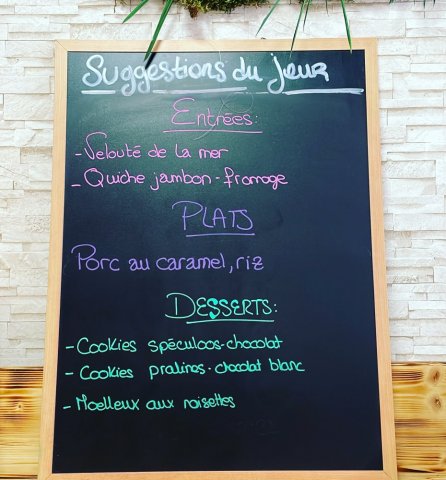 Suggestions du jour
Entrées:
- Velouté de la mer
- Quiche jambon - fromage
PLATS
Porc au caramel, riz
DESSERTS:
- Cookies spéculoos - chocolat
- Cookies pralinos - chocolat blanc
- Moelleux aux noisettes